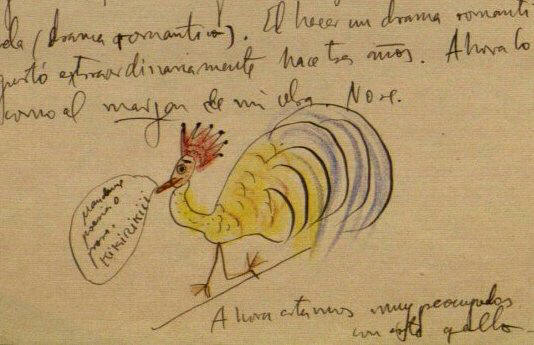 da (drama romantico). El hacer un drama romanti
gustó extraordinariamente hace tres años. Ahora lo
como al margen de mi obra. No se.
Mandame
poema o
prosa.
KiKiRiKiii
Ahora estamos muy preocupados
con este gallo.